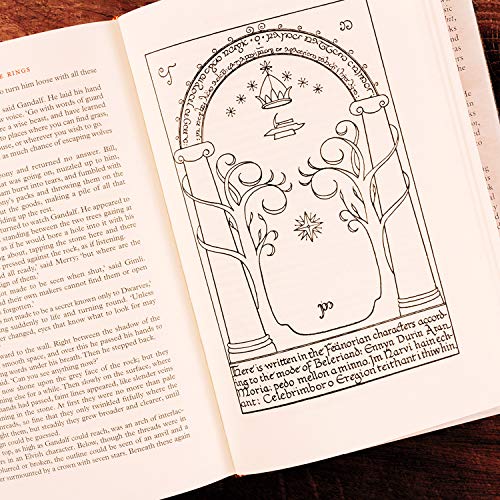 RINGS
to turn him loose with all these
said Gandalf. He laid his hand
voice. 'Go with words of guard
are a wise beast, and have learned
to places where you can find grass,
house, or wherever you wish to go.
as much chance of escaping wolves
pony and returned no answer. Bill,
what was going on, nuzzled up to him,
Sam burst into tears, and fumbled with
pony's packs and throwing them on the
out the goods, making a pile of all that
up the rest.
returned to watch Gandalf. He appeared
standing between the two trees gazing at
as if he would bore a hole into it with
about, tapping the stone here and there
pressed against the rock, as if listening.
all ready,' said Merry; 'but where are the
not made to be seen when shut,' said Gimli.
and their own makers cannot find them or open
forgotten.'
not made to be a secret known only to Dwarves,'
suddenly to life and turning round. 'Unless
changed, eyes that know what to look for may
forward to the wall. Right between the shadow of the
smooth space, and over this he passed his hands to
words under his breath. Then he stepped back.
'Can you see anything now?'
now shone upon the grey face of the rock; but they
else for a while. Then slowly on the surface, where
hands had passed, faint lines appeared, like slender veins
in the stone. At first they were no more than pale
so fine that they only twinkled fitfully where the
but steadily they grew broader and clearer, until
could be guessed.
top, as high as Gandalf could reach, was an arch of interlac-
in an Elvish character. Below, though the threads were in
blurred or broken, the outline could be seen of an anvil and a
surmounted by a crown with seven stars. Beneath these again
Here is written in the Fëanorian characters accord-
ing to the mode of Beleriand: Ennyn Durin Aran
Moria: pedo mellon a minno. Im Narvi hain ech-
ant: Celebrimbor o Eregion teithant i thiw hin.